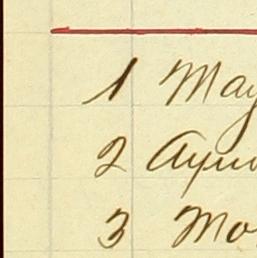 1 May
2 Ayun
3 Mo